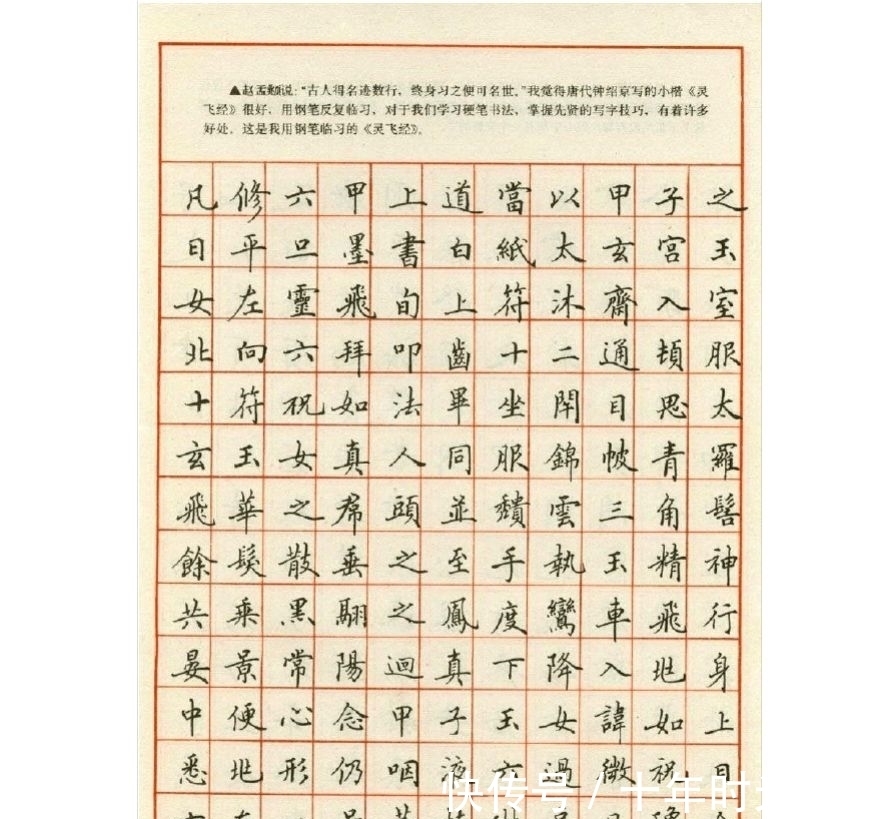 ▲赵孟頫说:“古人得名迹数行，终身习之便可名世。”我觉得唐代钟绍京写的小楷《灵
飞经》很好，用钢笔反复临习，对于我们学习硬笔书法，掌握先贤的写字技巧，有着许多
好处。这是我用钢笔临习的《灵飞经》。
凡修六甲上道當以甲子之
日平旦墨書白紙太玄宮玉
女左靈飛旬上符沐齋入室
北向六拜叩齒十二通頓服
十符祝如法畢坐閇目思太
玄玉女真人同服錦帔青羅
飛華之帬頭並穨雲三角髻
餘髮散垂之至手執玉精神
共乘黑翮之鳳度鸞車飛行
晏景常陽迴真下降入兆身
中便心念甲子玉女諱如上
悉兆形仍咽液六過微祝曰
快传号/十年时